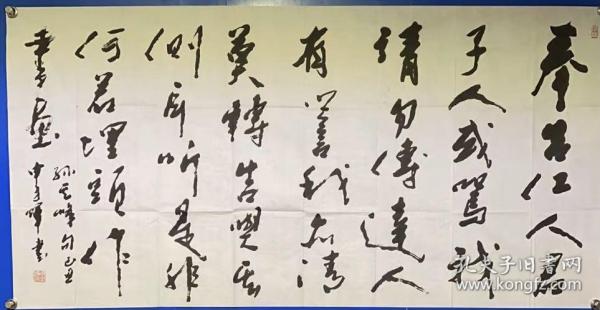 奉告仁人君
子人或骂我
请勿传达人
有誉我亦请
莫转告与其
侧耳听是非
何若埋头作
书画
孙其峰句己丑
书
孔夫子旧书网
www.kongfz.com